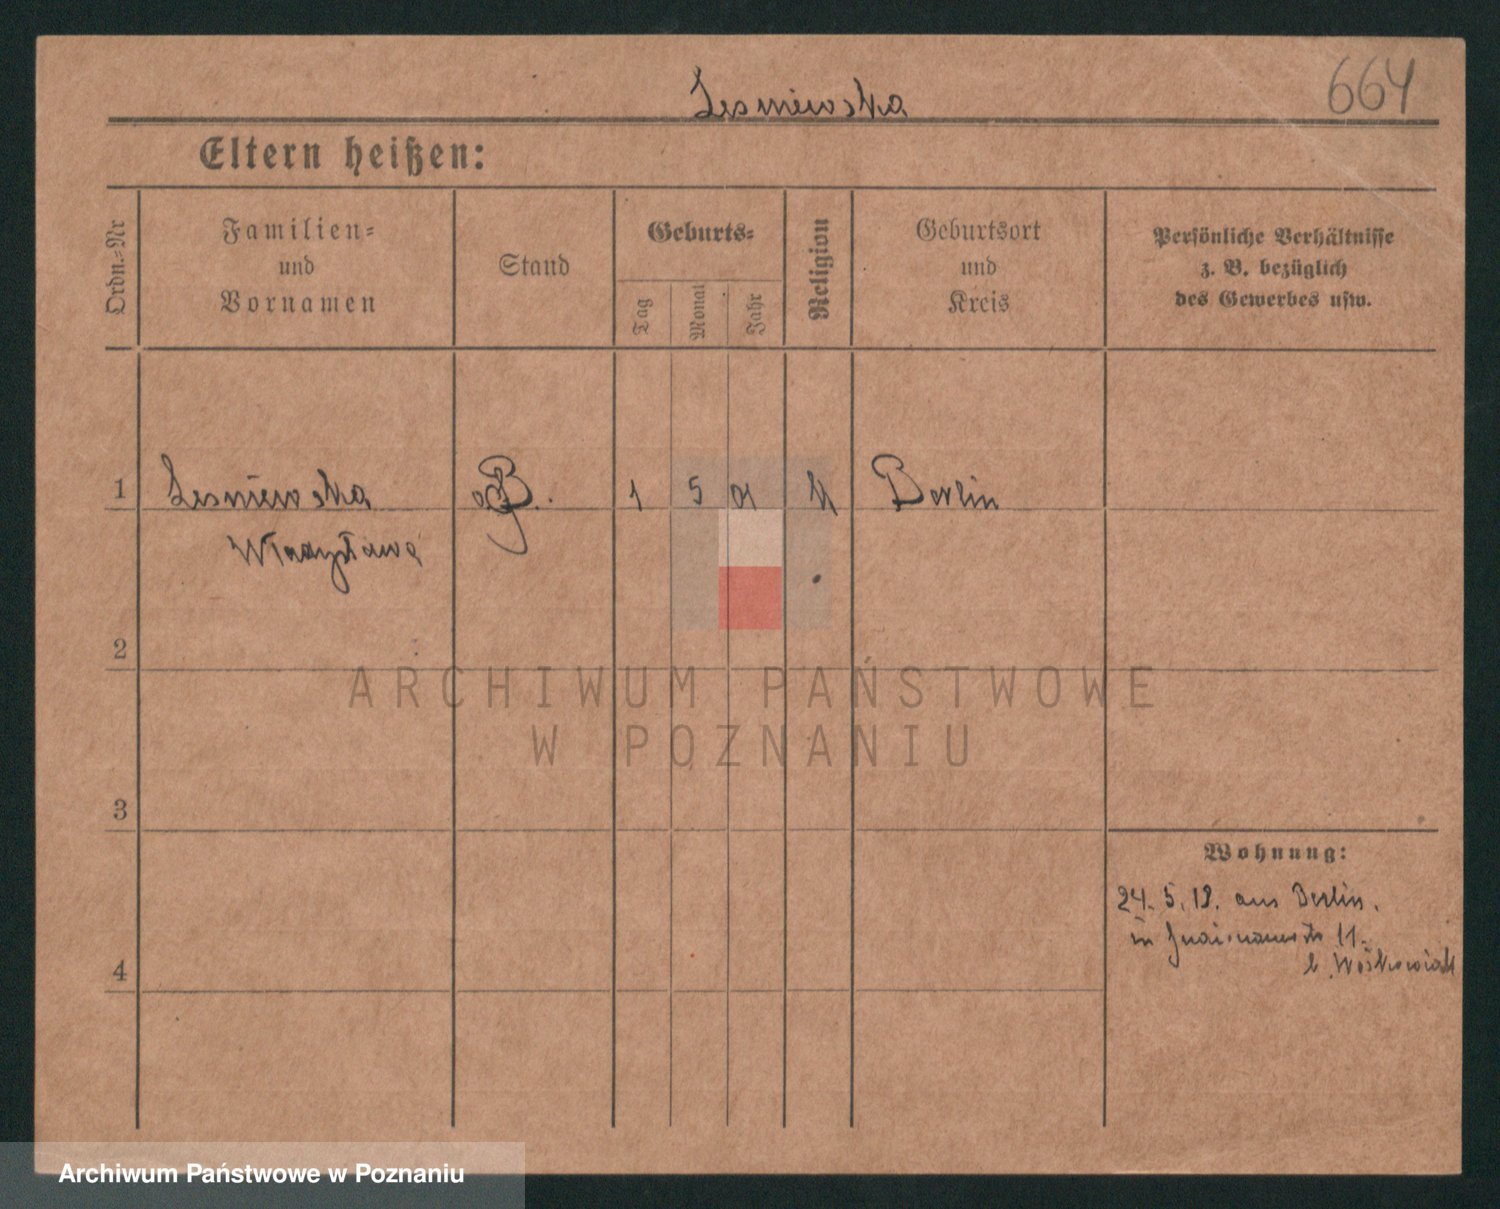 664
Lesniewska
Eltern heißen:
Ordn.=Nr
Familien=
und
Vornamen
Stand
Geburts=
Tag
Monat
Jahr
Religion
Geburtsort
und
Kreis
Persönliche Verhältnisse
z. B. bezüglich
des Gewerbes usw.
1 Lesniewska 1 5 01 k Berlin
Władysława
2
3
4
Wohnung:
24. 5. 18. aus Berlin.
in 11.
b.
ARCHIWUM PAŃSTWOWE
W POZNANIU
Archiwum Państwowe w Poznaniu